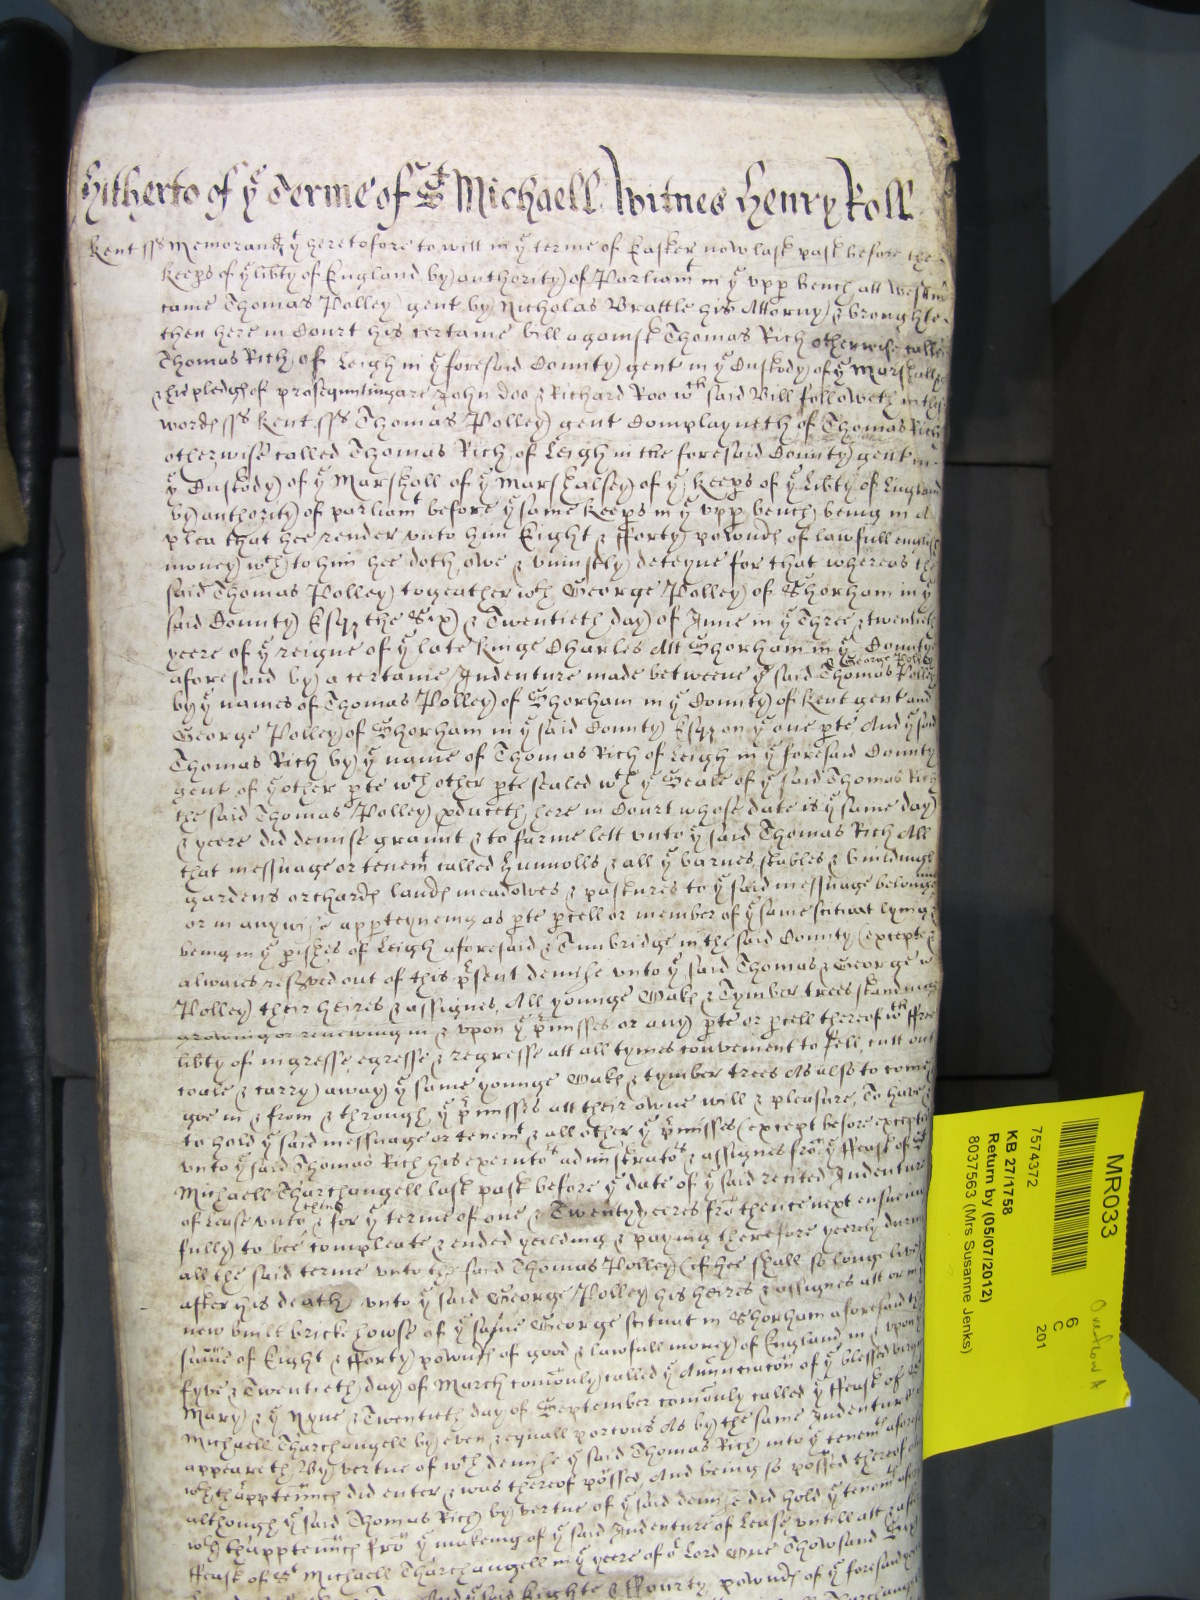 Hitherto of yͤ Terme of Sͭ Michaell Witnes Henry Roll
Kent ssͬ Memorand yͭ heretofore to witt in yͤ terme of Easter now last past before the
keeps of yͤ libty of England by authority of Parliamͭ in yͤ vpp bench att Westm
came Thomas Polley gent by Nicholas Brattle his Attorny & brought
then here in Court his certaine bill against Thomas Rich otherwise called
Thomas Rich of Leigh in yͤ foresaid County gent in yͤ Custody of yͤ Marshall
& pledgͬ of prosequuting are John Doo & Richard Roo wͭʰ said Bill followeth in these
wordes ssͬ Kent ssͬ Thomas Polley gent Complayneth of Thomas Rich
otherwise called Thomas Rich of Leigh in the foresaid County gent in
yͤ Custody of yͤ Marshall of yͤ Marshalsey of yͤ keeps of yͤ Libty of England
by authority of parliamͭ before yͤ same keeps in yͤ vpp bench being in a
plea that hee render vnto him Eight & fforty pownds of lawfull english
money wͨʰ to him hee doth owe & vniustly deteyne for that whereas the
said Thomas Polley togeather wͭʰ George Polley of Shorham in yͤ
said County Esqͬ the Six & Twentieth day of June in yͤ Three & twentieth
yeere of yͤ reigne of yͤ late Kinge Charles Att Shorham in yͤ County
aforesaid by a certaine Indenture made betweene yͤ said Thomas Polley & George Polley
by yͤ names of Thomas Polley of Shorham in yͤ County of Kent gent and
George Polley of Shorham in yͤ said County Esqͬ on yͤ one pte And yͤ said
Thomas Rich by yͤ name of Thomas Rich of Leigh in yͤ foresaid County
gent of yͤ other pte wͨʰ other pte sealed wͭʰ yͤ Seale of yͤ said Thomas Rich
the said Thomas Polley pduceth here in Court whose date is yͤ same day
& yeere did demise graunt & to farme lett vnto yͤ said Thomas Rich All
that messuage or tenemͭ called & all yͤ barnes stables & buildings
gardens orchards lands meadowes & pastures to yͤ said messuage belonging
or in anywise appteyneing as pte pcell or member of yͤ same scituat lying &
being in yͤ pishes of Leigh aforesaid & Tunbridge in the said County (except &
alwaies resved out of this psent demise vnto yͤ said Thomas & George
Polley their heires & assignes All younge Oakes & Tymber trees standing
growing or renewing in & vpon yͤ pmisses or any pte or pcell thereof wͭʰ ffree
libty of ingresse egresse & regresse att all tymes convenient to fell cutt out
coale & carry away yͤ same younge Oakes & tymber trees As also to come
goe in & from & through yͤ pmisses att their owne will & pleasure To have &
to hold yͤ said messuage or tenemͭ & all other yͤ pmisses (except before excepted)
vnto yͤ said Thomas Rich his executoͬs administratoͬs & assignes frō yͤ ffeast of Sͭ
Michaell Tharchangell last past before yͤ date of yͤ said recited Indenture
of Lease vnto & for yͤ terme of one & Twenty yeeres frō thence next ensueing
fully to bee compleate & ended yeilding & paying therefore yeerely during
all the said terme vnto the said Thomas Polley (if hee shall so longe live)
after his death vnto yͤ said George Polley his heires & assignes att or in yͤ
new built bricke howse of yͤ same George scituat in Shorham aforesaid the
sume of Eight & fforty pownds of good & lawfull money of England in & vpon
fyve & Twentieth day of March comonly called yͤ Annunciacon of yͤ blessed virgin
Mary & yͤ Nyne & Twentieth day of September comonly called yͤ ffeast of Sͭ
Michaell Tharchangell by even & equall porcons As by the same Indenture
appeareth By vertue of wͨʰ demise yͤ said Thomas Rich into yͤ tenemͭ aforesaid
wͭʰ thapptennc did enter & was thereof possed And being so possed thereof
although yͤ said Thomas Rich by vertue of yͤ said demise did hold yͤ tenemͭ
wͭʰ thapptennc frō yͤ makeing of yͤ said Indenture of Lease untill att & after
ffeast of Sͭ Michaell Tharchangell in yͤ yeere of oͬ Lord One Thowsand Six
And yͤ said Eighte & ffourty pownds of yͤ foresaid
MR033
7574372
KB 27/1758
Return by (05/07/2012)
8037563 (Mrs Susanne Jenks)
6
C
201